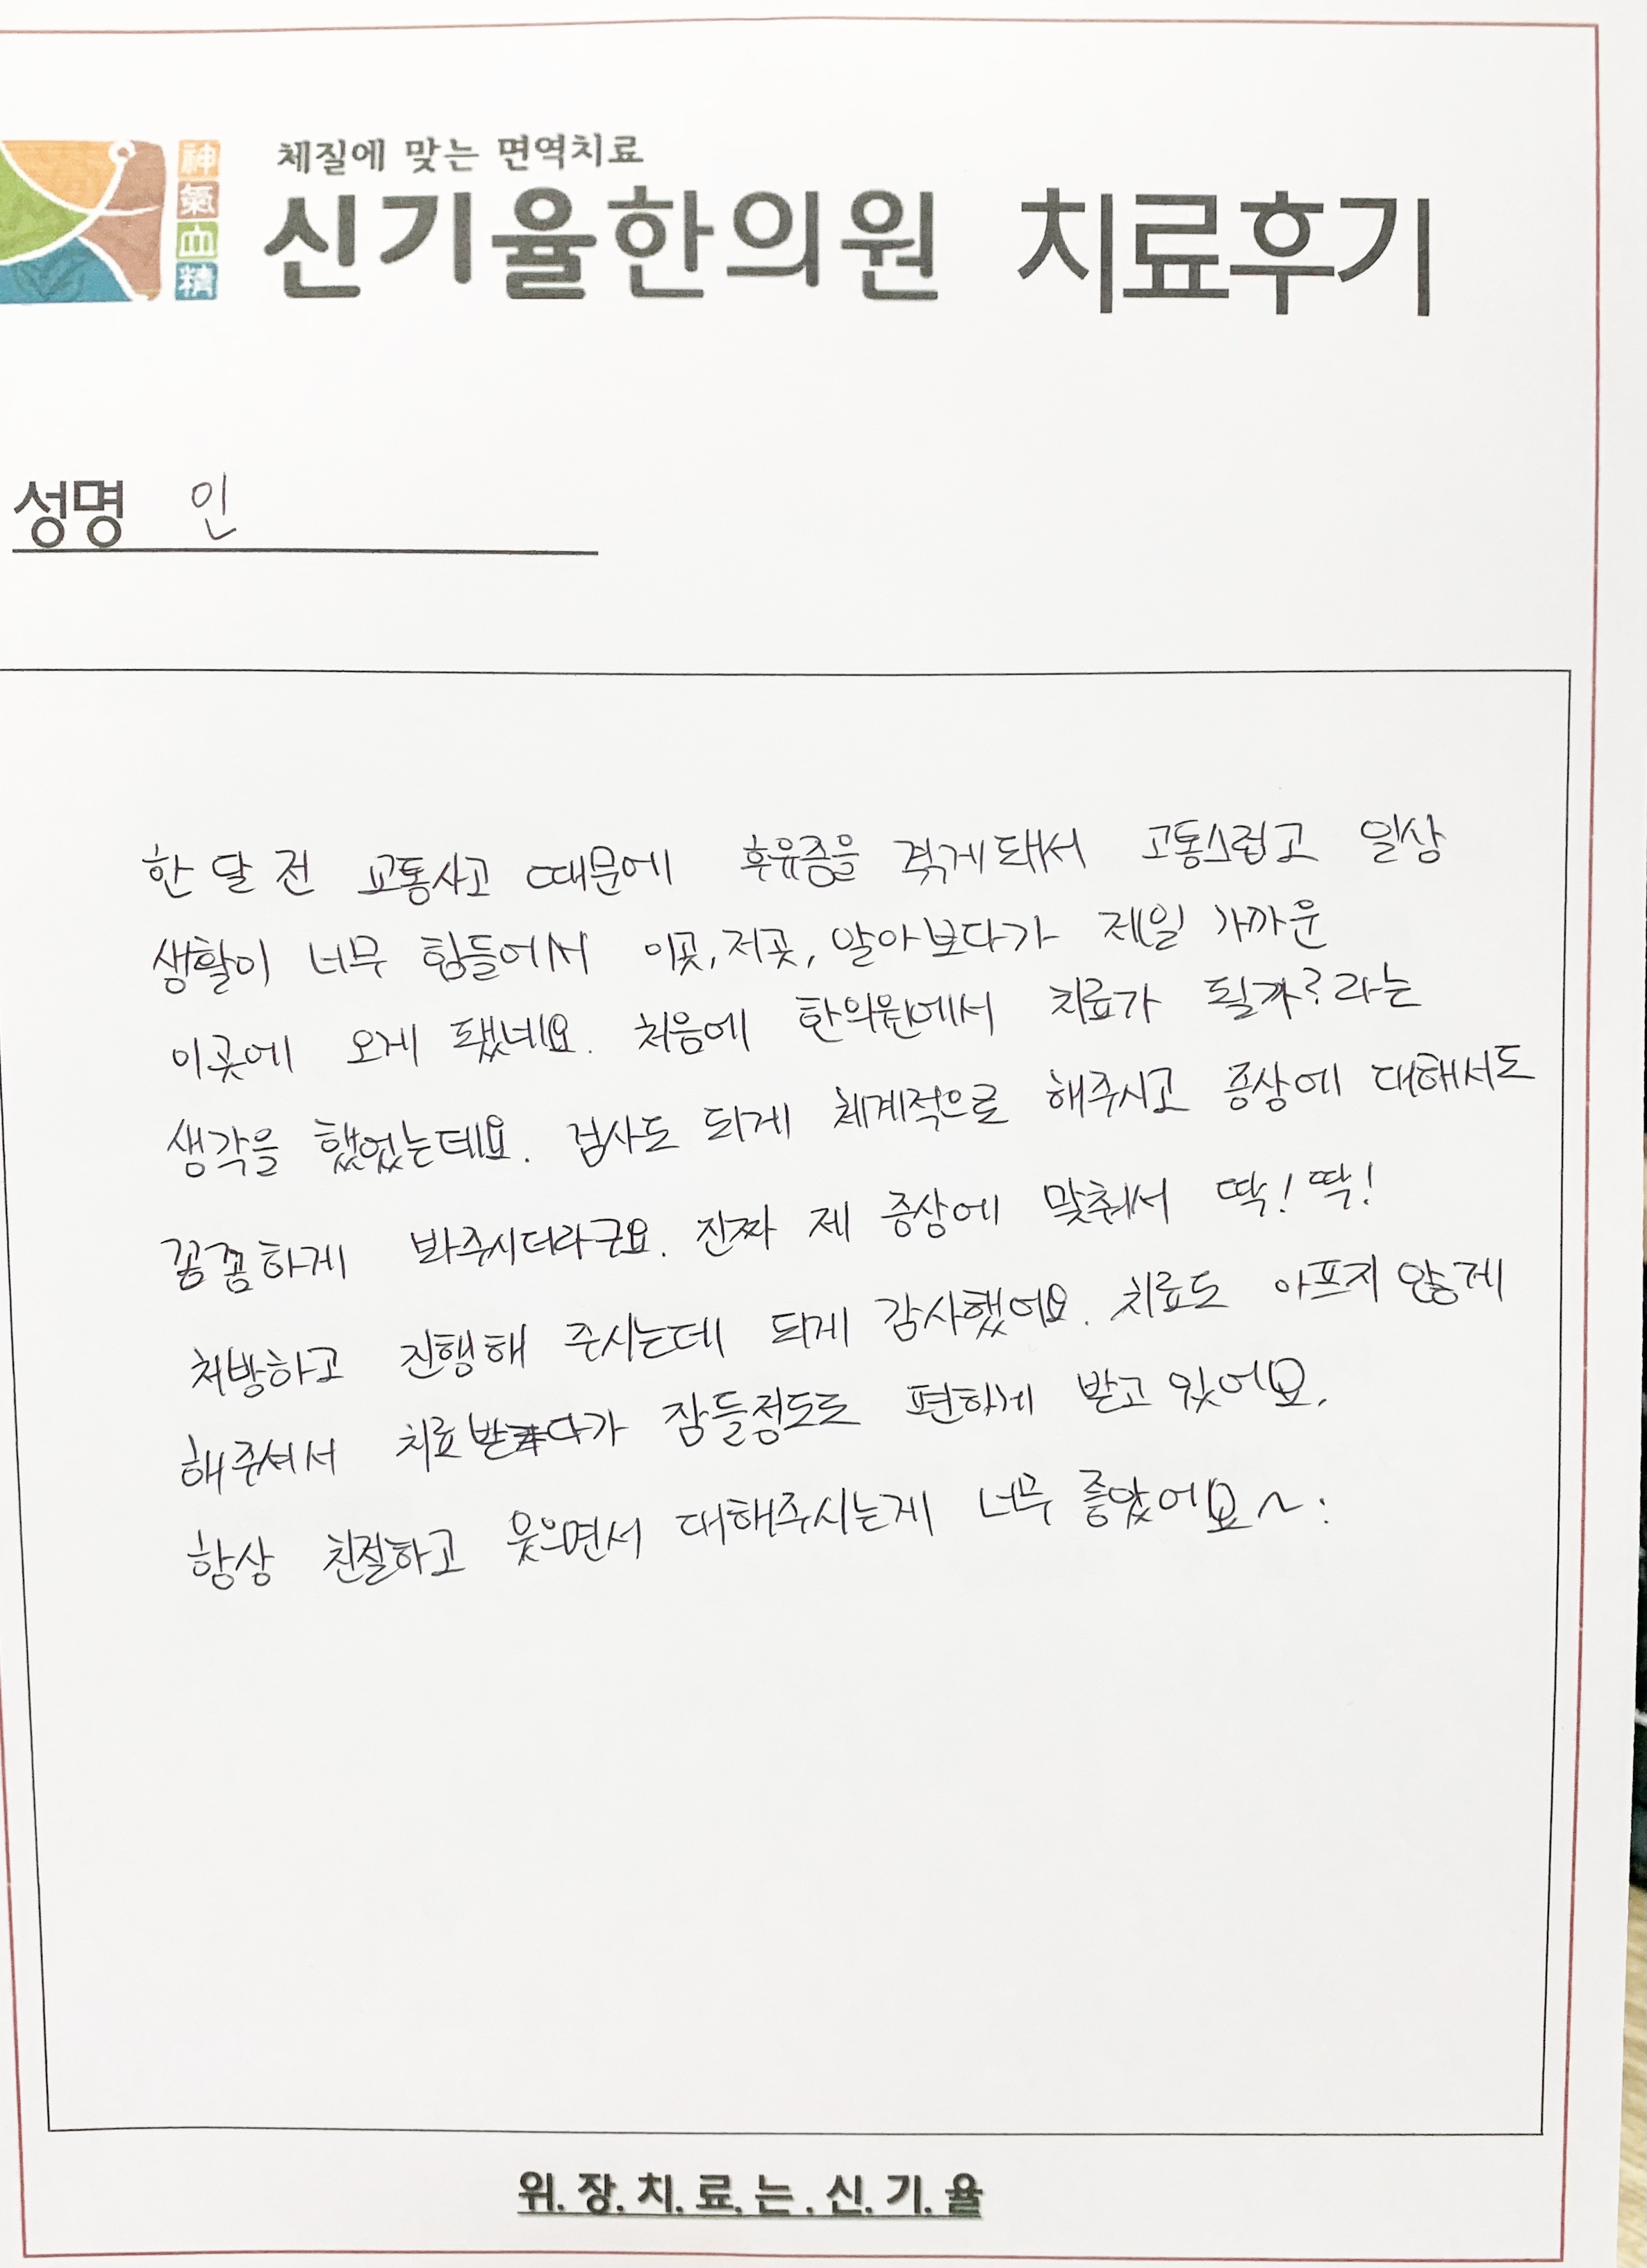 체질에 맞는 면역치료
神氣血精
신기율한의원 치료후기
성명 인
한 달 전 교통사고 때문에 후유증을 겪게돼서 고통스럽고 일상
생활이 너무 힘들어서 이곳,저곳, 알아보다가 제일 가까운
이곳에 오게 됐네요. 처음에 한의원에서 치료가 될까?라는
생각을 했었는데요. 검사도 되게 체계적으로 해주시고 증상에 대해서도
꼼꼼하게 봐주시더라구요. 진짜 제 증상에 맞춰서 딱! 딱!
처방하고 진행해 주시는데 되게 감사했어요. 치료도 아프지 않게
해주셔서 치료받다가 잠들정도로 편하게 받고 있어요.
항상 친절하고 웃으면서 대해주시는게 너무 좋았어요~.
위.장.치.료.는.신.기.율